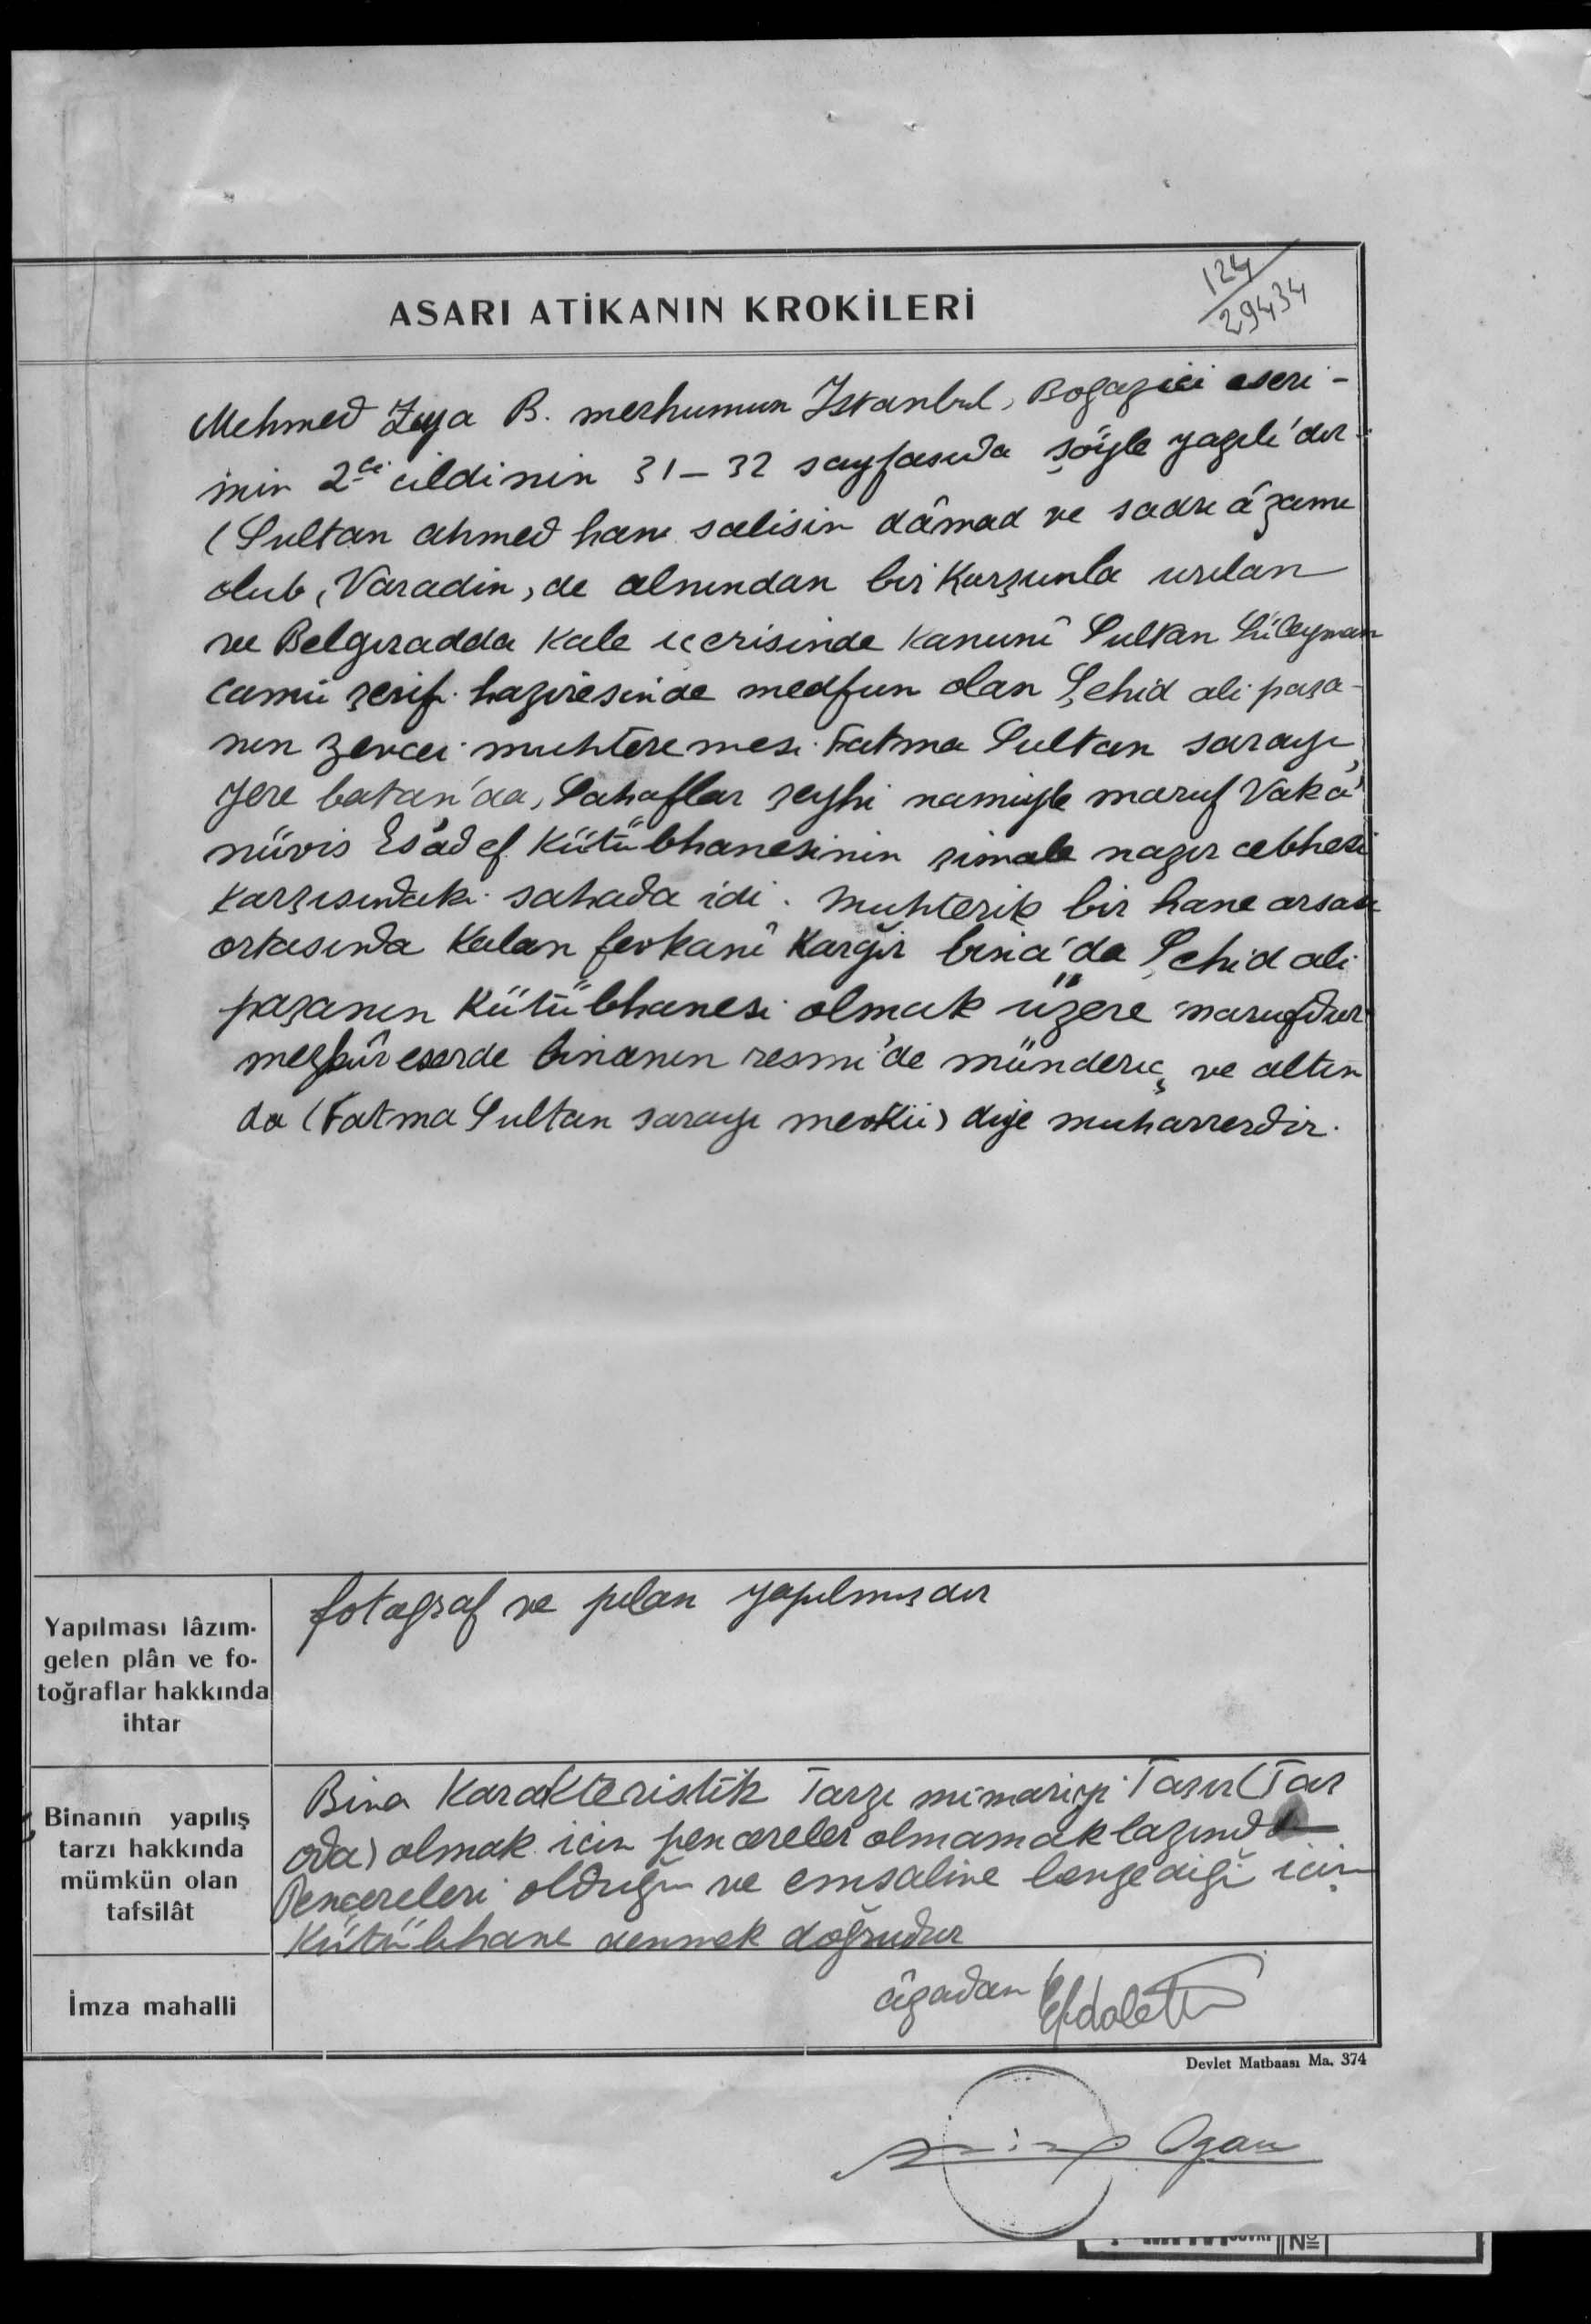 124
29434
ASARI ATİKANIN KROKİLERİ
Mehmed Zıya B. merhumun Istanbul, Bogaziçi eseri-
inin 2ci cildinin 31-32 sayfasında şöyle yazılı'dır.
(Sultan ahmed hanı salisin dâmad ve sadrı âzamı
olub, Varadin, de alnından bir Kurşunla urılan
ve Belgıradda Kale içerisinde Kanunî Sultan Süleyman
camii şerifi haziresinde medfun olan Şehid ali paşa-
nın zevcei muhteremesi Fatma Sultan sarayı,
yere batan'da, Sahaflar şeyhi namiyle maruf Vak'a
nüvis Es'ad ef. Kütübhanesinin şimale nazır cebhesi
Karşısındaki sahada idi. Muhterik bir hane arsası
ortasında Kalan fevkanî Kârğir bina'da Şehid ali
paşanın Kütübhanesi olmak üzere marufdur
mezkûr eserde binanın resmi'de münderiç, ve altın
da (Fatma Sultan sarayı mevkii) diye muharrerdir.
Yapılması lâzım-
gelen plân ve fo-
toğraflar hakkında
ihtar
fotograf ve pılan yapılmışdır
Binanın yapılış
tarzı hakkında
mümkün olan
tafsilât
Bina Karakteristik Tarzı mimariyi Taşır (Taş
oda) olmak için pencereler olmamak lazımdı
Pençereleri olduğu ve emsaline benzediği için
Kütübhane denmek doğrudur
İmza mahalli
âzadan Efdalettin
Devlet Matbaası Ma. 374
Ogan
No